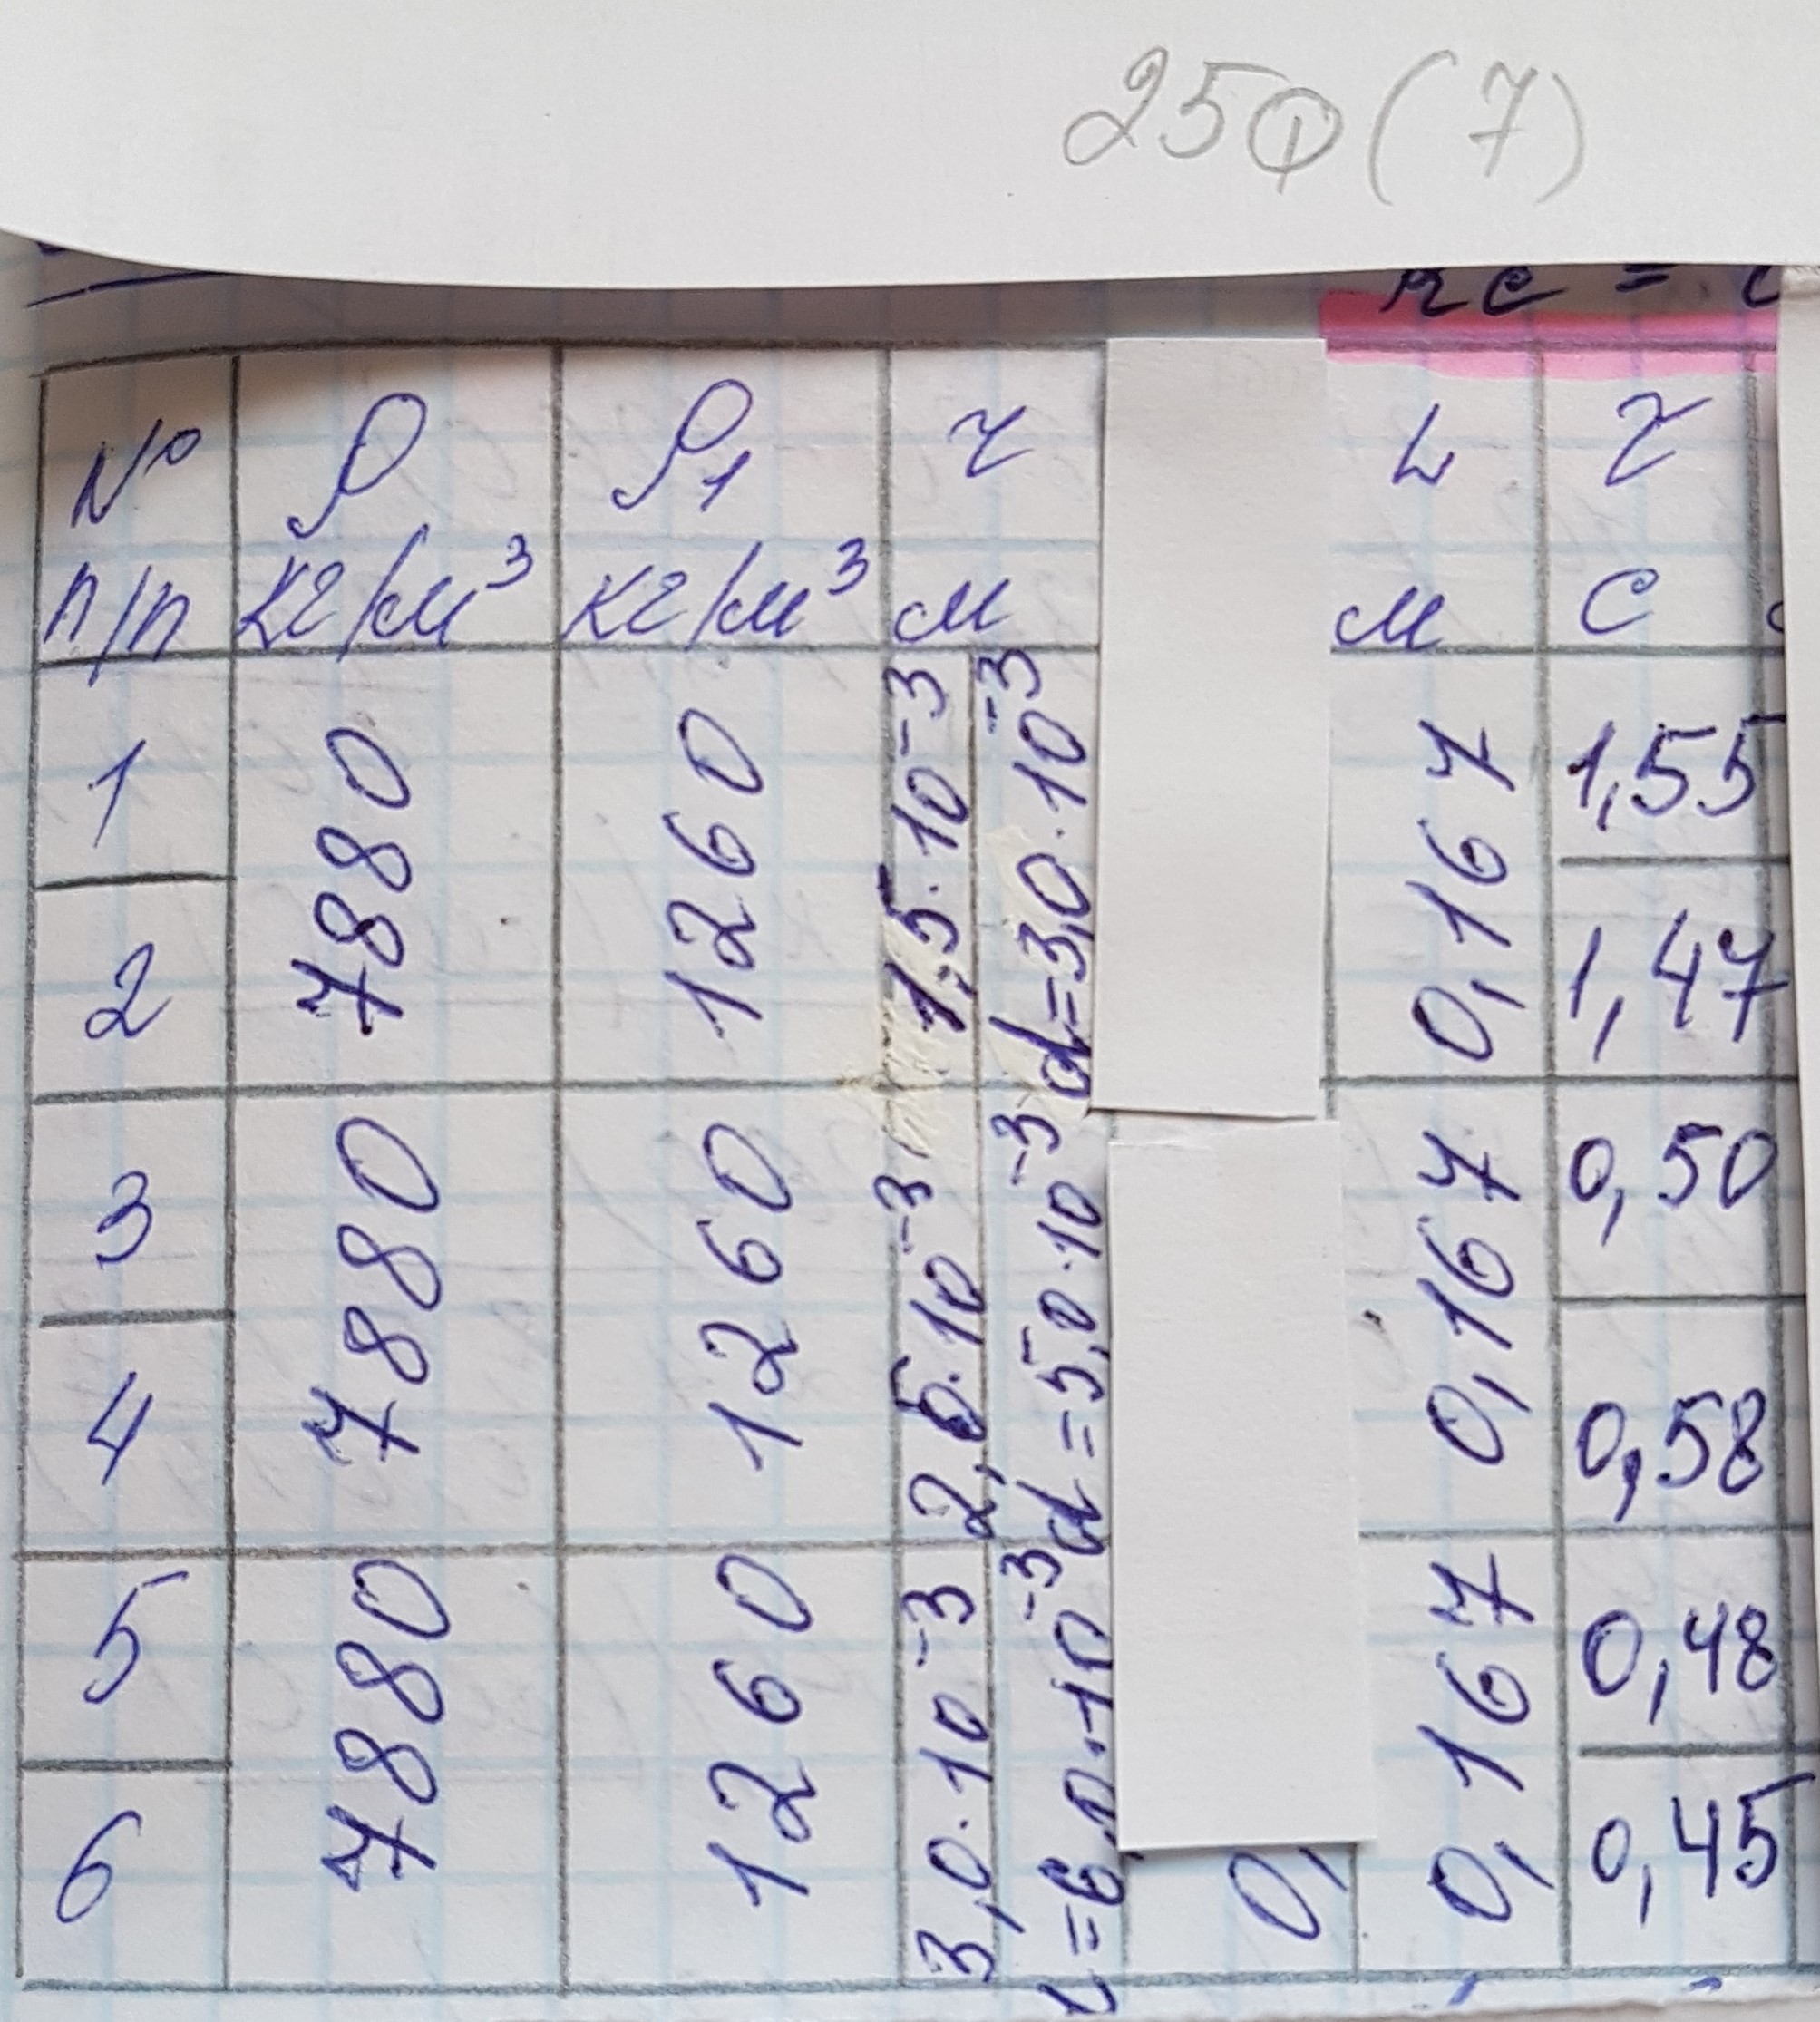 25Ф(7)
Re =
№ ρ ρ₁ r L τ
п/п кг/м³ кг/м³ м м с
1 7880 1260 1,5·10⁻³ d=3,0·10⁻³ 0,167 1,55
2 1,47
3 7880 1260 2,5·10⁻³ d=5,0·10⁻³ 0,167 0,50
4 0,58
5 7880 1260 3,0·10⁻³ =6,0·10⁻³ 0, 0,167 0,48
6 0,45